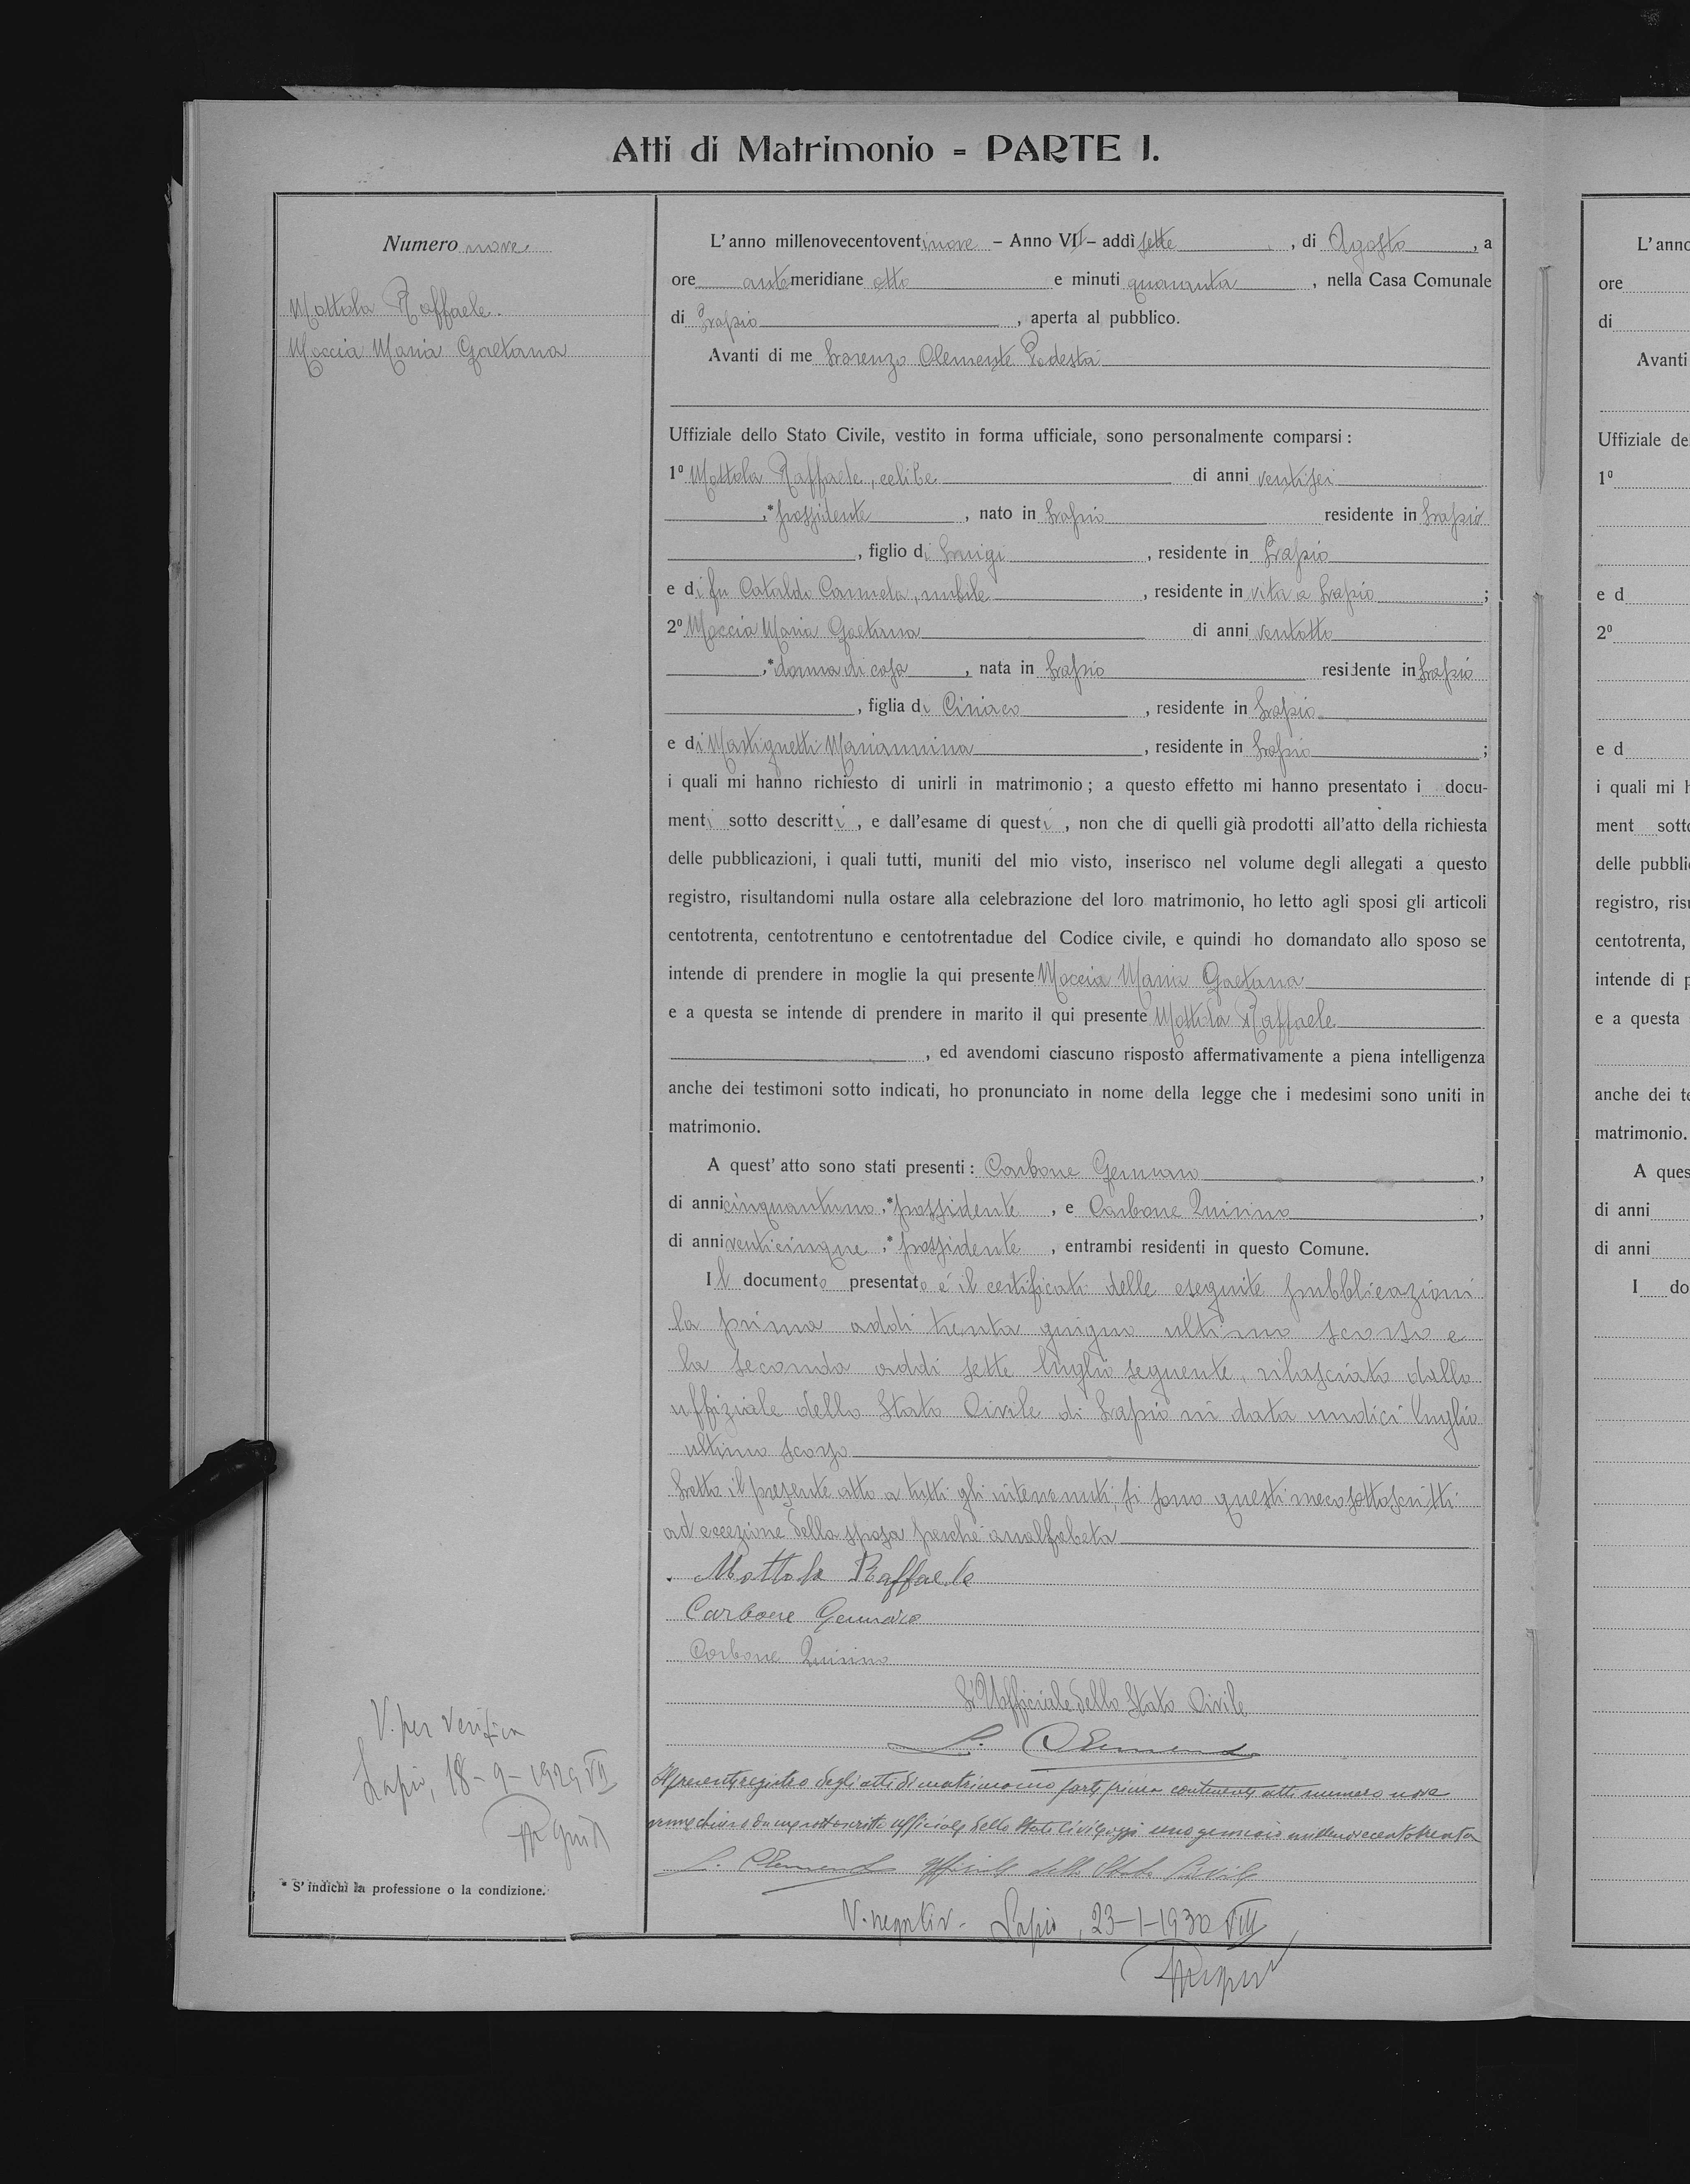 Atti di Matrimonio - PARTE I.
Numero nove
Mottola Raffaele.
Moccia Maria Gaetana
L'anno millenovecentoventinove - Anno VII - addì sette , di Agosto , a
ore antemeridiane otto e minuti quaranta , nella Casa Comunale
di Lapio , aperta al pubblico.
Avanti di me Lorenzo Clemente Podestà
Uffiziale dello Stato Civile, vestito in forma ufficiale, sono personalmente comparsi :
1º Mottola Raffaele, celibe di anni ventisei
,* possidente , nato in Lapio residente in Lapio
, figlio di Luigi , residente in Lapio
e di fu Cataldo Carmela, nubile , residente in vita a Lapio ;
2º Moccia Maria Gaetana di anni ventotto
,* donna di casa , nata in Lapio residente in Lapio
, figlia di Ciriaco , residente in Lapio
e di Mastignetti Mariannina , residente in Lapio ;
i quali mi hanno richiesto di unirli in matrimonio ; a questo effetto mi hanno presentato i docu-
menti sotto descritti , e dall'esame di questi , non che di quelli già prodotti all'atto della richiesta
delle pubblicazioni, i quali tutti, muniti del mio visto, inserisco nel volume degli allegati a questo
registro, risultandomi nulla ostare alla celebrazione del loro matrimonio, ho letto agli sposi gli articoli
centotrenta, centotrentuno e centotrentadue del Codice civile, e quindi ho domandato allo sposo se
intende di prendere in moglie la qui presente Moccia Maria Gaetana
e a questa se intende di prendere in marito il qui presente Mottola Raffaele
, ed avendomi ciascuno risposto affermativamente a piena intelligenza
anche dei testimoni sotto indicati, ho pronunciato in nome della legge che i medesimi sono uniti in
matrimonio.
A quest' atto sono stati presenti : Carbone Gennaro ,
di anni cinquantuno ,* possidente , e Carbone Quirino ,
di anni venticinque ,* possidente , entrambi residenti in questo Comune.
Il documento presentato é il certificato delle eseguite pubblicazioni
la prima addì trenta giugno ultimo scorso e
la seconda addì sette luglio seguente, rilasciato dallo
uffiziale dello Stato Civile di Lapio in data undici luglio
ultimo scorso
Letto il presente atto a tutti gli intervenuti, si sono questi meco sottoscritti
ad eccezione della sposa perché analfabeta
Mottola Raffaele
Carbone Gennaro
Carbone Quirino
L'Ufficiale dello Stato Civile
L. Clemente
Il presente registro degli atti di matrimonio parte prima contenente atti numero nove
viene chiuso da me sottoscritto ufficiale dello Stato Civile oggi uno gennaio millenovecentotrenta
L. Clemente Ufficiale dello Stato Civile
V. per verifica
Lapio, 18-9-1929 VII
* S' indichi la professione o la condizione.
V. negativ. Lapio, 23-1-1930 VIII
L'anno
ore
di
Avanti
Uffiziale de
1º
e d
2º
e d
i quali mi h
ment sotto
delle pubbli
registro, risu
centotrenta,
intende di p
e a questa
anche dei te
matrimonio.
A ques
di anni
di anni
I do